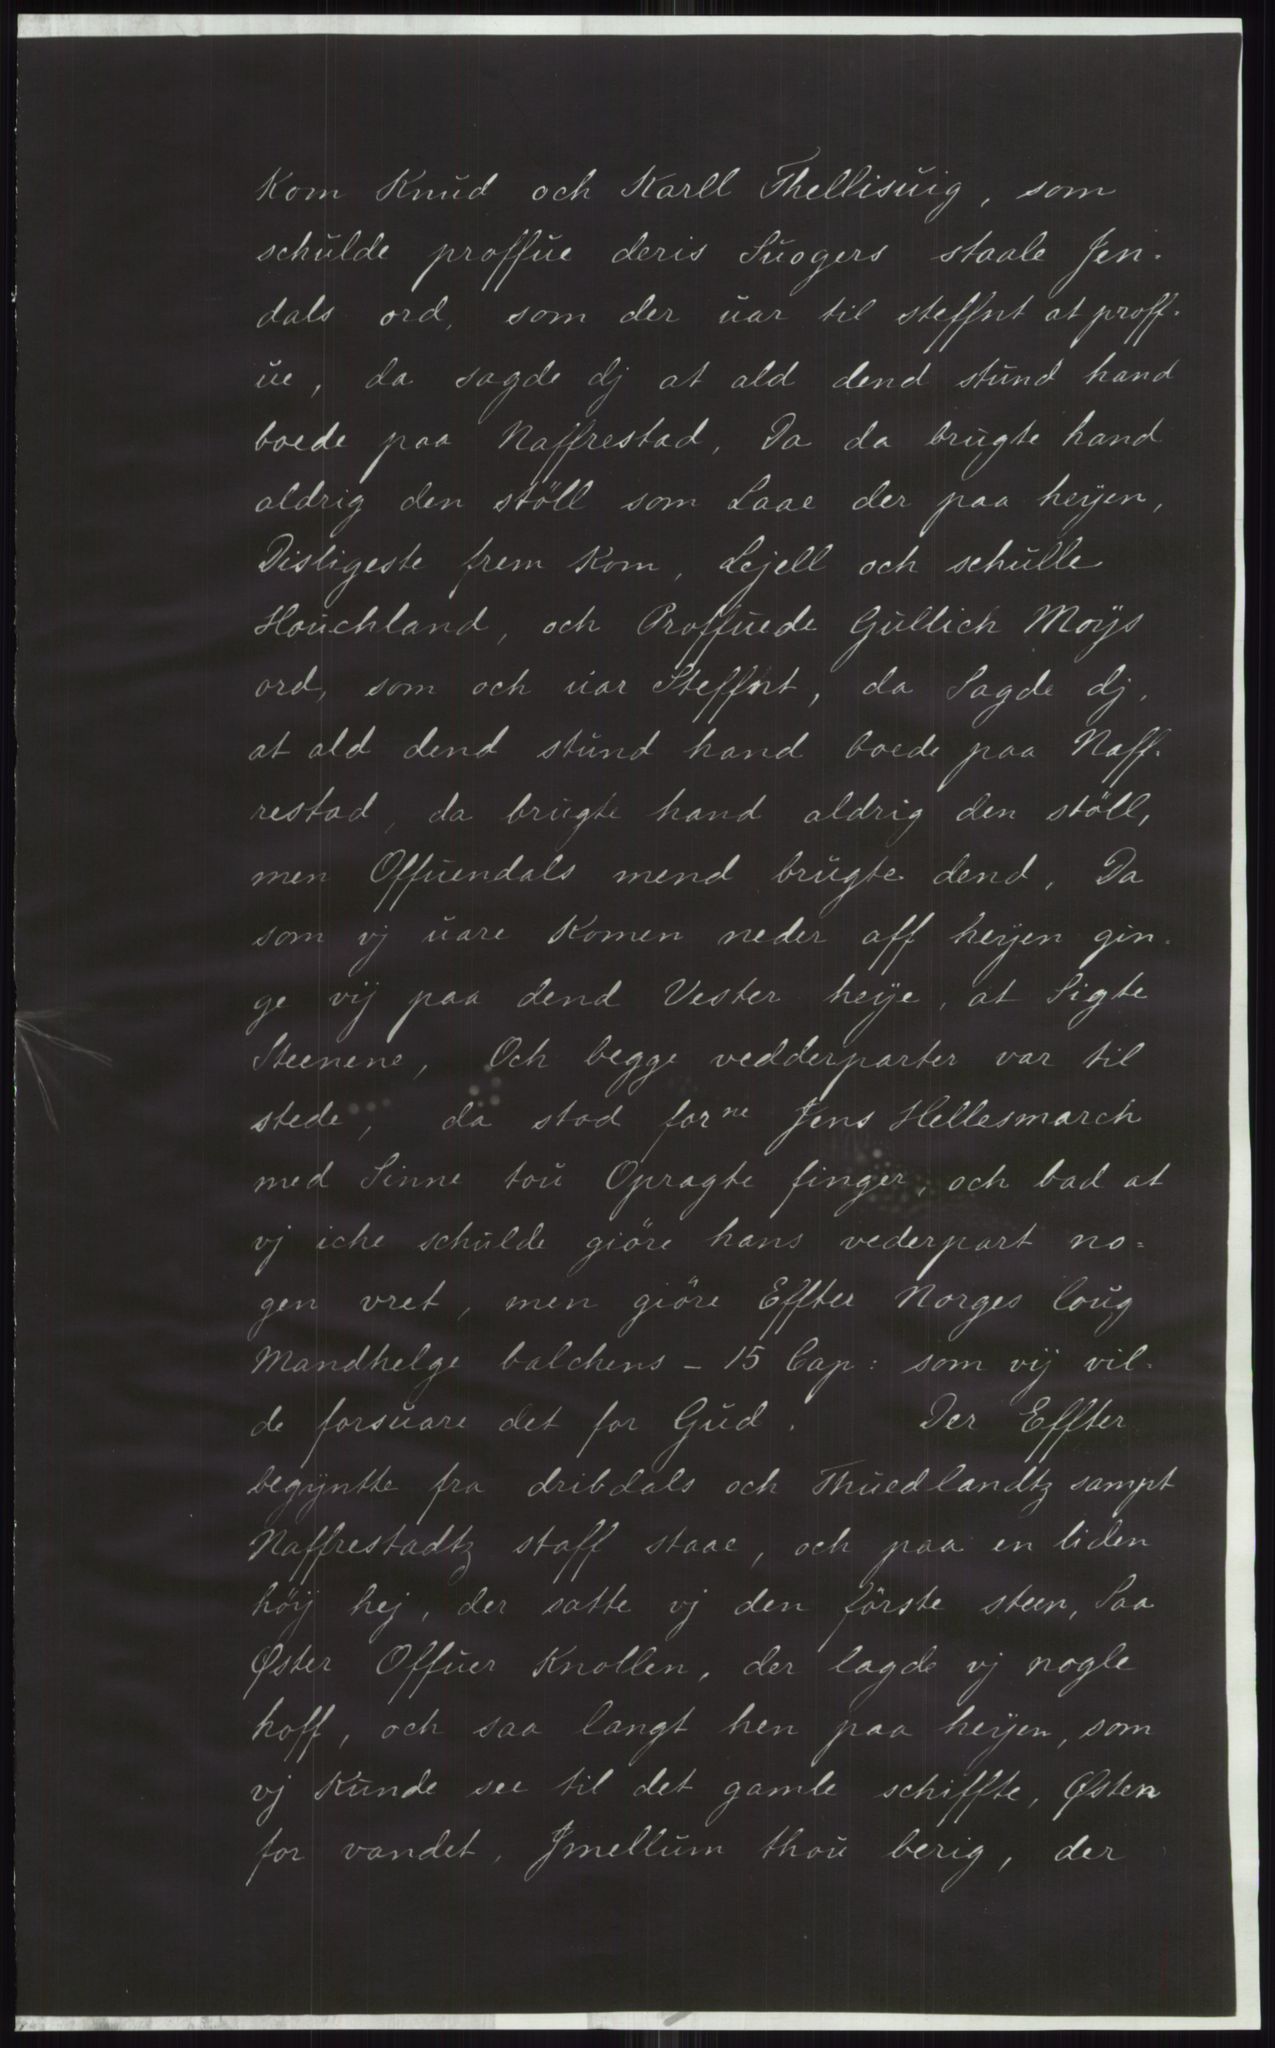 Kom Knud och Karll Thellisuig, som
schulde proffue deris Suogers staale Jen-
dals ord, som der uar til steffnt at proff-
ue, da sagde dj at ald dend stund hand
boede paa Naffrestad, Da da brugte hand
aldrig den ställ som Laae der paa heyen,
Disligeste frem Kom, Lejell och schulle
Houchland, och Proffuede Gullich Moÿs
ord, som och uar Steffnt, da Sagde dj,
at ald dend stund hand boede paa Naff-
restad, da brugte hand aldrig den ställ,
men Offuendals mend brugte dend, Da
som vj uare Komen neder aff heyen gin-
ge vij paa dend Vester heÿe, at Sigte
Steenene, Och begge vedderparter var til
stede, da stod forne Jens Hellesmarch
med Sinne tou Opragte finger, och bad at
vj iche schulde giöre hans vederpart no-
gen vret, men giöre Effter Norges loug
Mandhelge balchens - 15 Cap: som vij vil-
de forsuare det for Gud. Der Effter
begÿntte fra dribdals och Thuedlandtz sampt
Naffrestadtz staff staae, och paa en liden
höÿ hej, der satte vj den förste steen, Saa
Øster Offuer Knollen, der lagde vj nogle
hoff, och saa langt hen paa heÿen, som
vj Kunde see til det gamle schiffte, Østen
for vandet, Jmellum thou berig, der